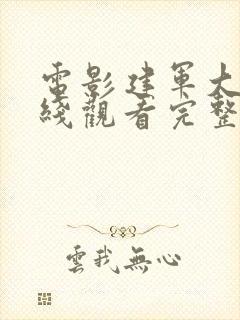 電影建軍大
綫觀看完整
雲我無心